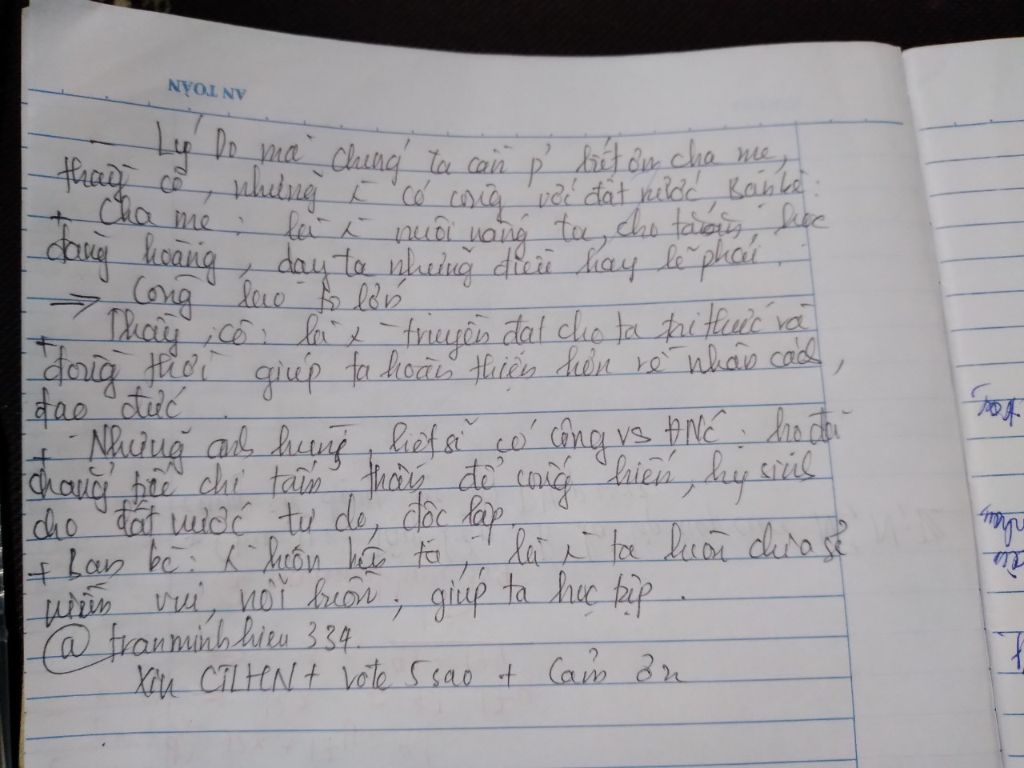 AN TOÀN
- Lý Do mà chúng ta cần p' biết ơn cha mẹ,
thầy cô, những x có công với đất nước, bạn bè:
+ Cha mẹ: là x nuôi nấng ta, cho ta học
đàng hoàng, dạy ta những điều hay lẽ phải.
=> Công lao to lớn
+ Thầy, cô: là x truyền đạt cho ta tri thức và
đồng thời giúp ta hoàn thiện hơn về nhân cách,
đạo đức.
+ Những anh hùng, liệt sĩ có công vs ĐNc: họ đã
chẳng tiếc chi tấm thân để cống hiến, hy sinh
cho đất nước tự do, độc lập.
+ Bạn bè: x luôn bên ta, là x ta luôn chia sẻ
niềm vui, nỗi buồn, giúp ta học tập.
@tranminhhieu334.
Xin CTLHN + Vote 5 sao + Cảm ơn